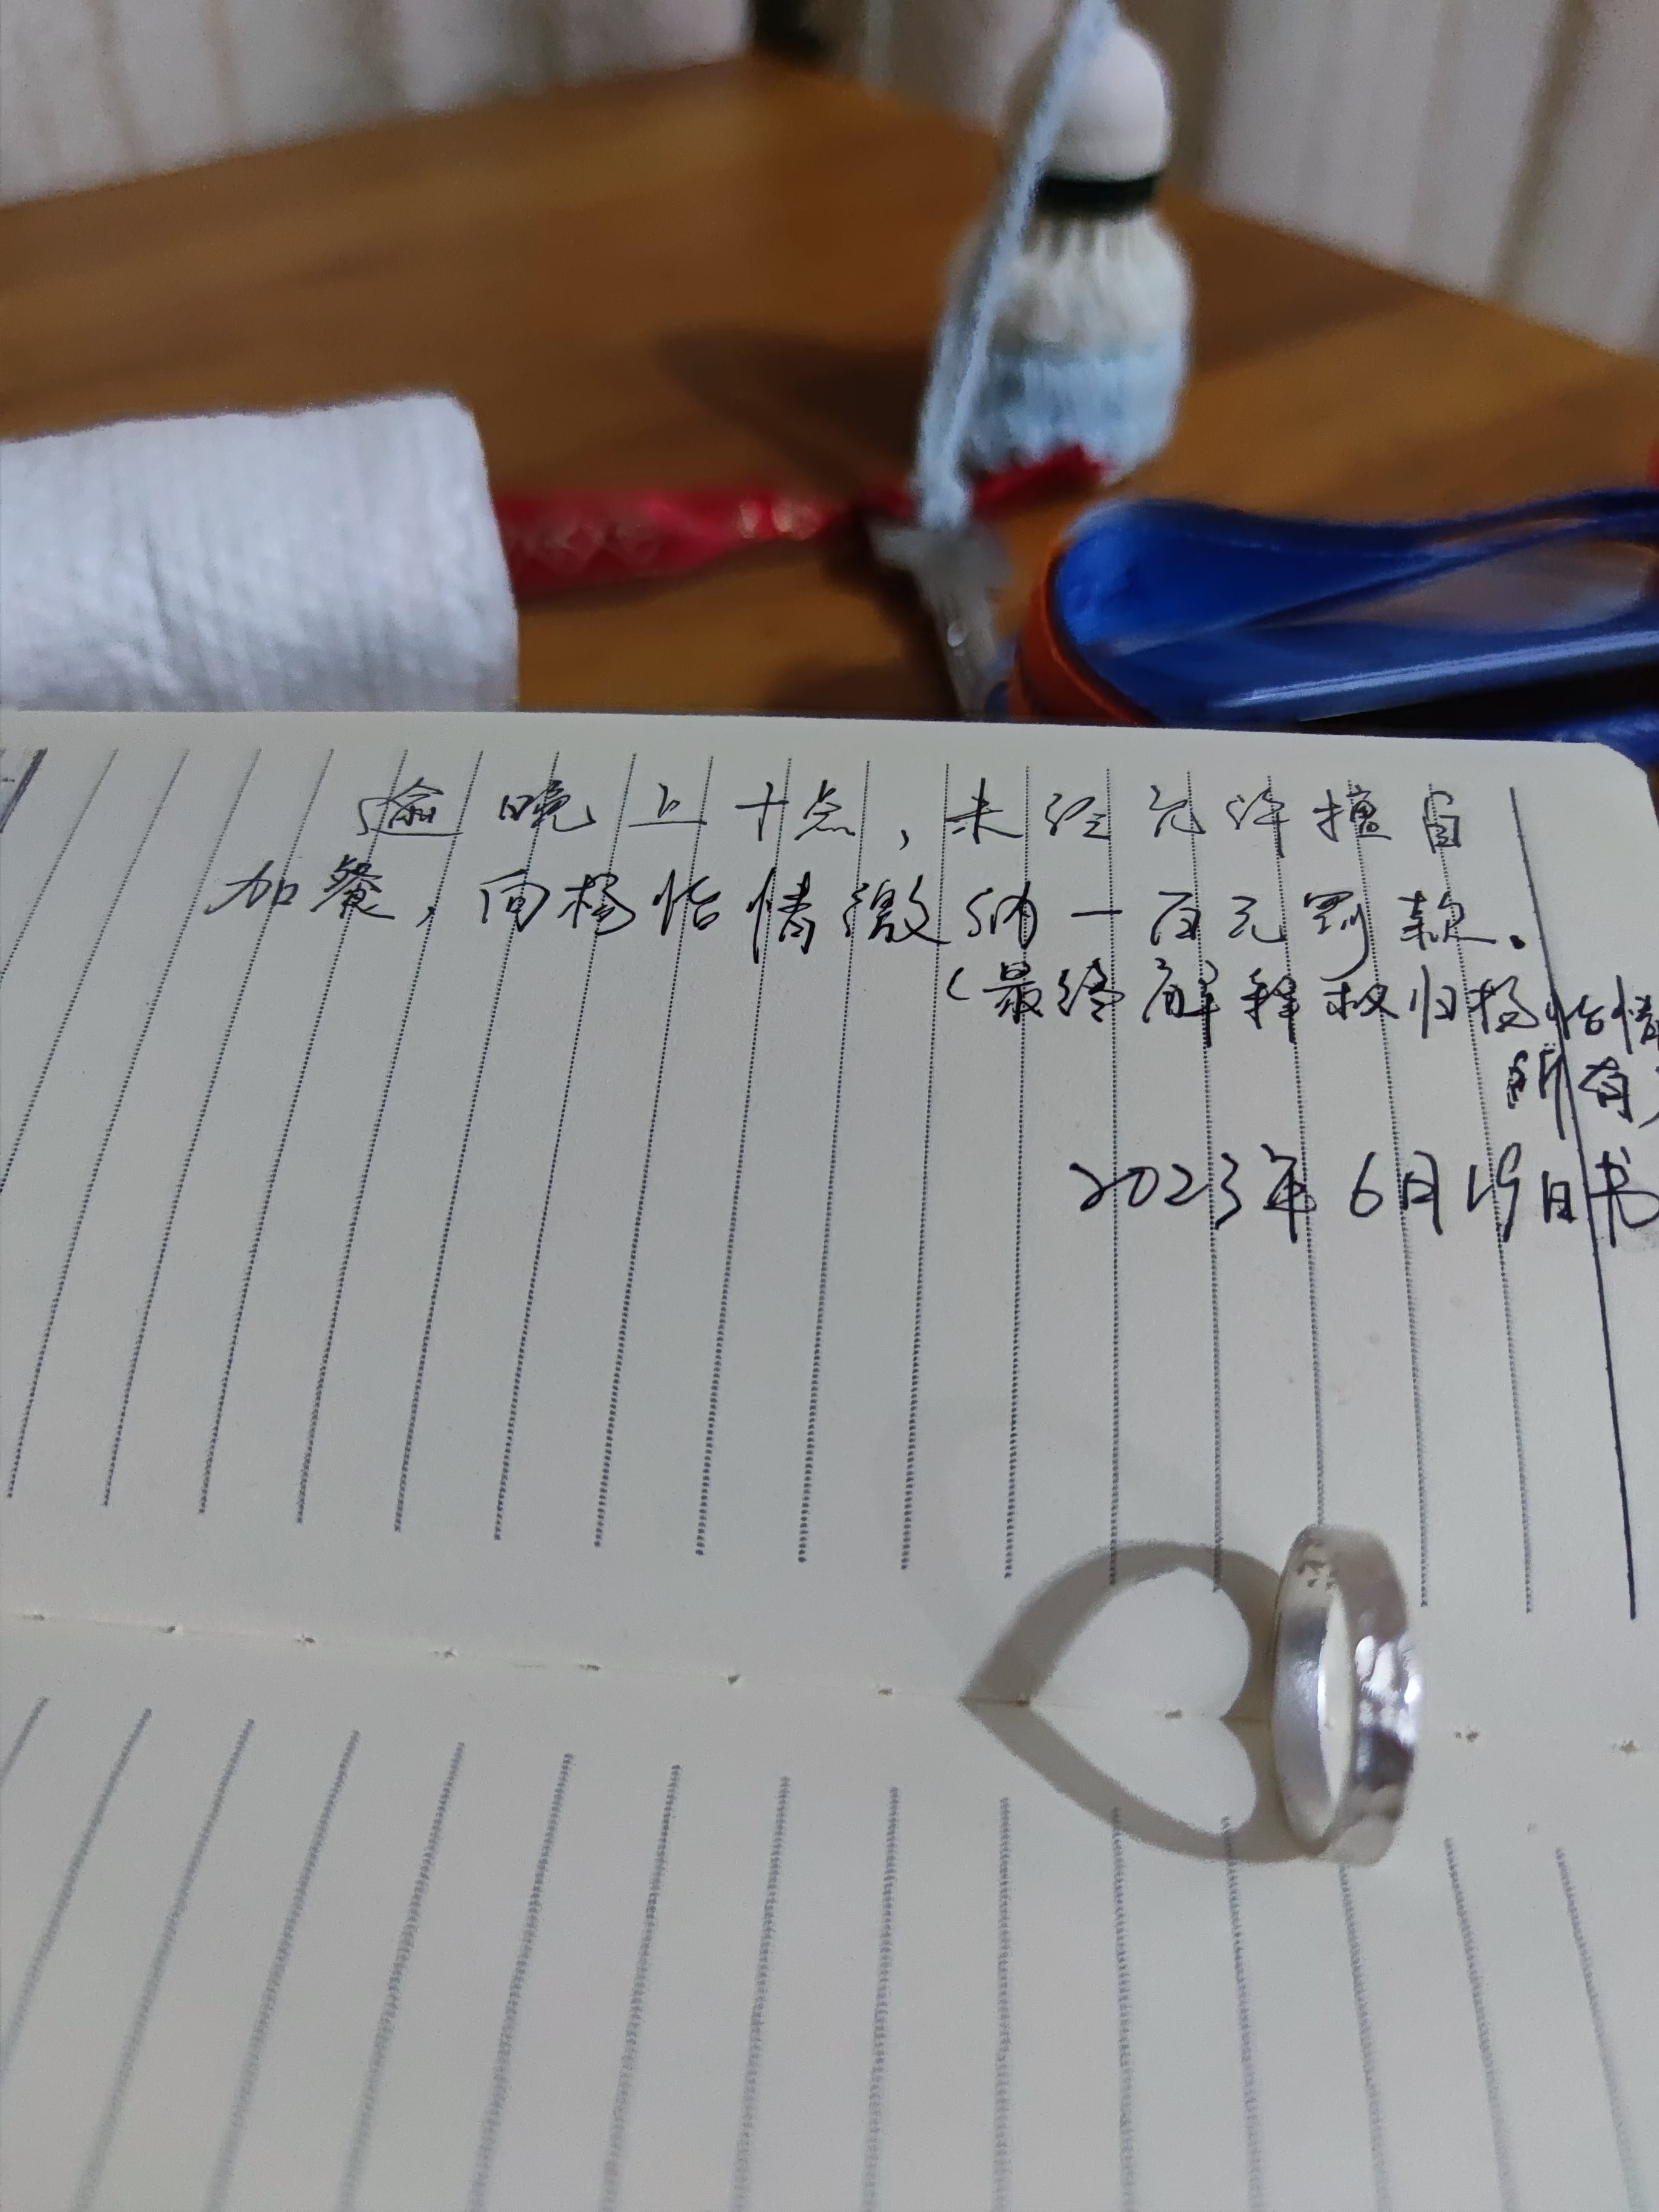 逾晚上十点，未经允许擅自
加餐，向杨怡情缴纳一百元罚款。
（最终解释权归杨怡情
所有）
2023年6月19日书